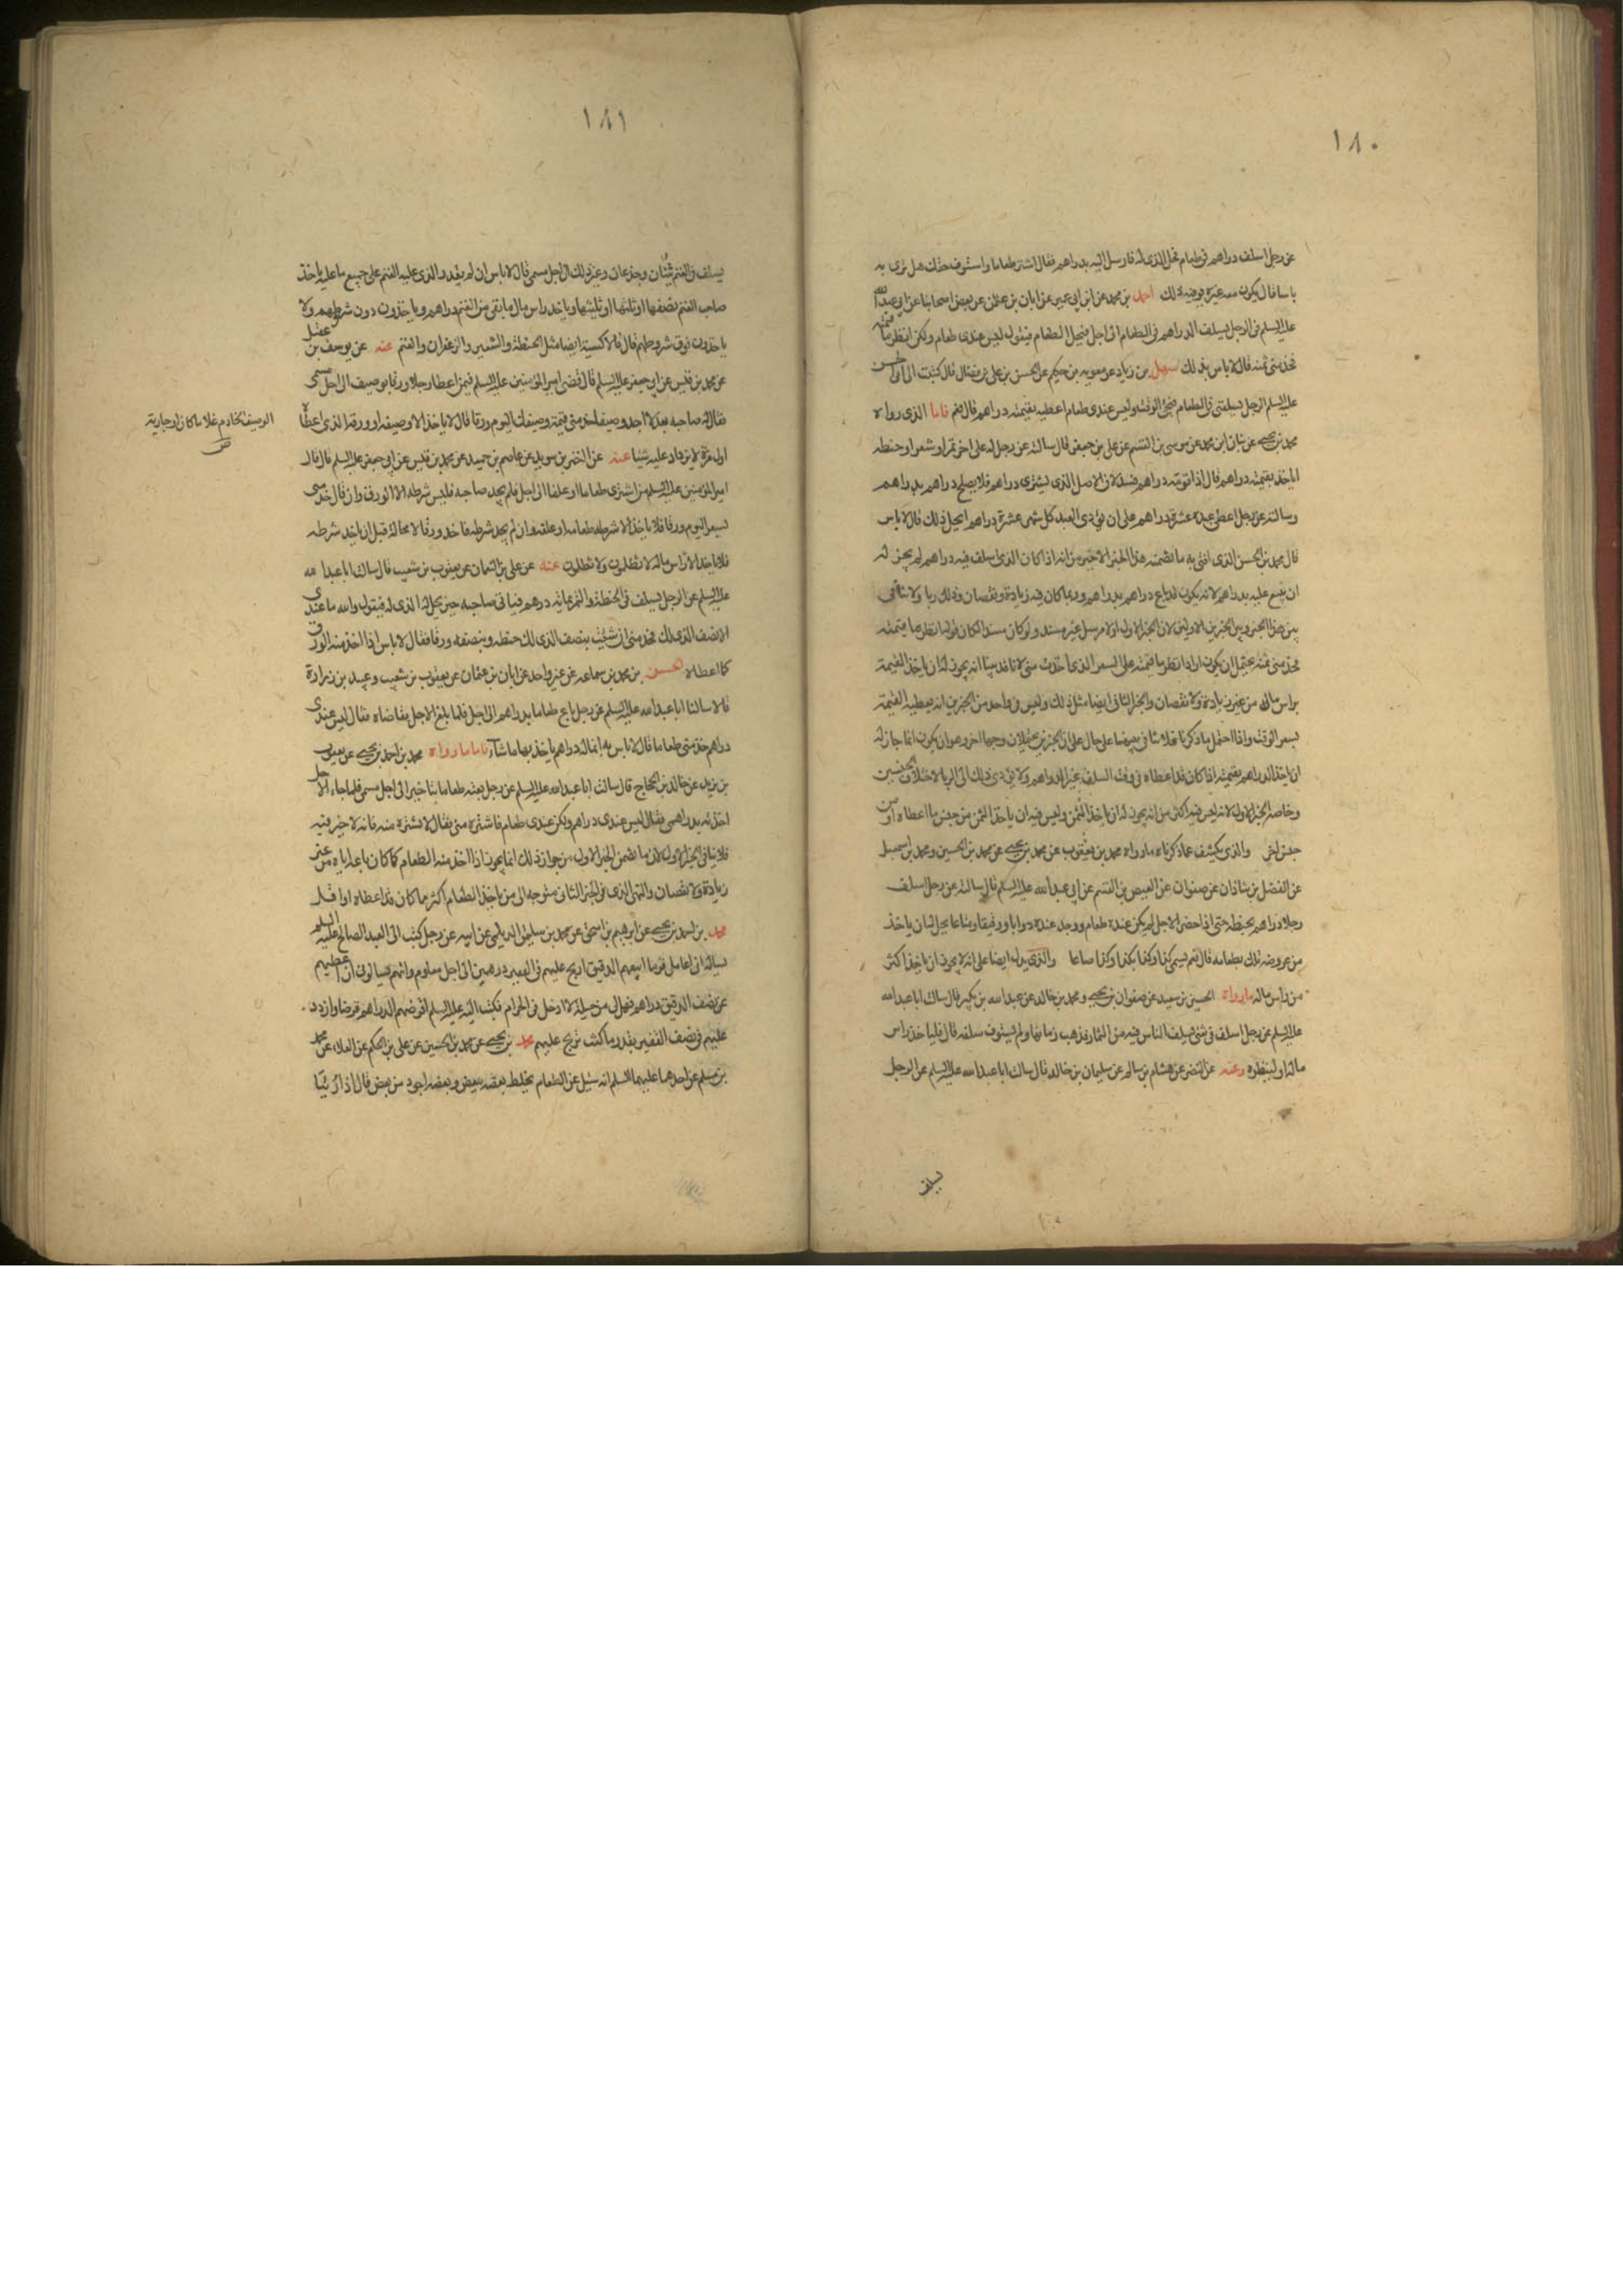 ١٨٠
عن رجل اسلف دراهم في طعام فحل الذى له فارسل اليه بدراهم فقال اشتر طعاما واستوف حقك هل ترى به
باسا قال يكون معه غيره يوفيه ذلك احمد بن محمد عن ابن ابي عمير عن ابان بن عثمن عن بعض اصحابنا عن ابي عبد الله
عليه السلم في الرجل يسلف الدراهم في الطعام الى اجل فيحل الطعام فيقول ليس عندى طعام ولكن انظر ما قيمته
فخذ منى ثمنه قال لا باس بذلك سهل بن زياد عن معويه بن حكيم عن الحسن بن على بن فضال قال كتبت الى ابى الحسن
عليه السلم الرجل يسلفنى في الطعام فيجئ الوقت وليس عندى طعام اعطيه بقيمته دراهم قال نعم فاما الذى رواه
محمد بن يحيى عن بنان ابن محمد عن موسى بن القسم عن على بن جعفر قال سالته عن رجل له على اخر تمر او شعير او حنطه
اياخذ بقيمته دراهم قال اذا قومه دراهم فسد لان الاصل الذى يشترى دراهم فلا يصلح دراهم بدراهم
وسالته عن رجل اعطى عبده عشرة دراهم على ان يؤدى العبد كل شهر عشرة دراهم ايحل ذلك قال لا باس
قال محمد بن الحسن الذى افتى به ما تضمنه هذا الخبر الاخير من انه اذا كان الذى اسلف فيه دراهم لم يجز له
ان يبيع عليه بدراهم لانه يكون قد باع دراهم بدراهم وربما كان فيه زيادة ونقصان وذلك ربا ولا تنافى
بين هذا الخبر وبين الخبرين الاولين لان الخبر الاول اولا مرسل غير مسند ولو كان مسندا لكان قوله انظر ما قيمته
فخذ منى ثمنه يحتمل ان يكون اراد انظر ما قيمته على السعر الذى اخذت منى لانا قد بينا انه يجوز له ان ياخذ القيمة
براس ماله من غير زيادة ولا نقصان والخبر الثانى ايضا مثل ذلك وليس في واحد من الخبرين انه يعطيه القيمة
بسعر الوقت واذا احتمل ما ذكرنا فلا تنافى بينهما على حال على ان الخبرين يحتملان وجها اخر وهو ان يكون انما جاز له
ان ياخذ الدراهم بقيمته اذا كان قد اعطاه في وقت السلف غير الدراهم ولا يؤدى ذلك الى الربا لاختلاف الجنسين
وخاصة الخبر الاول لانه ليس فيه اكثر من انه يجوز له ان ياخذ الثمن وليس فيه ان ياخذ الثمن من جنس ما اعطاه او من
جنس اخر والذى يكشف عما ذكرناه ما رواه محمد بن يعقوب عن محمد بن يحيى عن محمد بن الحسين ومحمد بن اسمعيل
عن الفضل بن شاذان عن صفوان عن العيص بن القسم عن ابي عبد الله عليه السلم قال سالته عن رجل اسلف
رجلا دراهم بحنطه حتى اذا حضر الاجل لم يكن عنده طعام ووجد عنده دوابا ورقيقا ومتاعا يحل له ان ياخذ
من عروضه تلك بطعامه قال نعم يسمى كذا وكذا بكذا وكذا صاعا والذى يدل ايضا على انه لا يجوز ان ياخذ اكثر
من راس ماله ما رواه الحسين بن سعيد عن صفوان بن يحيى ومحمد بن خالد عن عبد الله بن بكير قال سالت ابا عبد الله
عليه السلم عن رجل اسلف في شئ يسلف الناس فيه من الثمار فذهب زمانها ولم يستوف سلفه قال فلياخذ راس
ماله او لينظره وعنه عن النضر عن هشام بن سالم عن سليمان بن خالد قال سالت ابا عبد الله عليه السلم عن الرجل
يسلف
١٨١
يسلف في الغنم ثنيان وجذعان وغير ذلك الى اجل مسمى قال لا باس ان لم يقدر الذى عليه الغنم على جميع ما عليه ياخذ
صاحب الغنم نصفها او ثلثها او ثلثيها وياخذ راس مال ما بقى من الغنم دراهم وياخذون دون شرطهم ولا
ياخذون فوق شروطهم قال والاكسية ايضا مثل الحنطة والشعير والزعفران والغنم عنه عن يوسف بن عقيل
عن محمد بن قيس عن ابي جعفر عليه السلم قال قضى امير المؤمنين عليه السلم فيمن اعطا رجلا ورقا بوصيف الى اجل مسمى
فقال له صاحبه بعد لا اجد وصيفا خذ منى قيمة وصيفك اليوم ورقا قال لا ياخذ الا وصيفه او ورقه الذى اعطاه
اول مرة لا يزداد عليه شيئا عنه عن النضر بن سويد عن عاصم بن حميد عن محمد بن قيس عن ابي جعفر عليه السلم قال قال
امير المؤمنين عليه السلم من اشترى طعاما او علفا الى اجل فلم يجد صاحبه فليس شرطه الا الورق وان قال خذ منى
بسعر اليوم ورقا فلا ياخذ الا شرطه طعامه او علفه وان لم يجد شرطه فاخذ ورقا لا محالة قبل ان ياخذ شرطه
فلا ياخذ الا راس ماله لا تظلمون ولا تظلمون عنه عن على بن النعمان عن يعقوب بن شعيب قال سالت ابا عبد الله
عليه السلم عن الرجل يسلف في الحنطة والتمر بمائه درهم فياتى صاحبه حين يحل له الذى له فيقول والله ما عندى
الا نصف الذى لك فخذ منى ان شئت بنصف الذى لك حنطه وبنصفه ورقا فقال لا باس اذا اخذ منه الورق
كما اعطاه الحسن بن محمد بن سماعه عن غير واحد عن ابان بن عثمان عن يعقوب بن شعيب وعبيد بن زرارة
قالا سالنا ابا عبد الله عليه السلم عن رجل باع طعاما بدراهم الى اجل فلما بلغ الاجل تقاضاه فقال ليس عندى
دراهم خذ منى طعاما قال لا باس به انما له دراهم ياخذ بها ما شاء فاما ما رواه محمد بن احمد بن يحيى عن يعقوب
بن يزيد عن خالد بن الحجاج قال سالت ابا عبد الله عليه السلم عن رجل بعته طعاما بتاخير الى اجل مسمى فلما جاء الاجل
اخذته بدراهمى فقال ليس عندى دراهم ولكن عندى طعام فاشتره منى فقال لا تشتره منه فانه لا خير فيه
فلا ينافى الخبر الاول لان ما تضمن الخبر الاول من جواز ذلك انما يجوز اذا اخذ منه الطعام كما كان باعه اياه من غير
زيادة ولا نقصان والنهى الذى في الخبر الثانى متوجه الى من ياخذ الطعام اكثر مما كان قد اعطاه او اقل
محمد بن احمد بن يحيى عن ابرهيم بن اسحق عن محمد بن سليمن الديلمى عن ابيه عن رجل كتب الى العبد الصالح عليه السلم
يساله انى اعامل قوما ابيعهم الدقيق اربح عليهم في القفيز درهمين الى اجل معلوم وانهم يسالونى ان اعطيهم
عن نصف الدقيق دراهم فهل لى من حيلة لا ادخل في الحرام فكتب اليه عليه السلم اقرضهم الدراهم قرضا وازدد
عليهم في نصف القفيز بقدر ما كنت تربح عليهم محمد بن يحيى عن محمد بن الحسين عن على بن الحكم عن العلاء عن محمد
بن مسلم عن احدهما عليهما السلم انه سئل عن الطعام يخلط بعضه ببعض وبعضه اجود من بعض قال اذا رئيا
الوصيف الخادم غلاما كان او جارية
ص